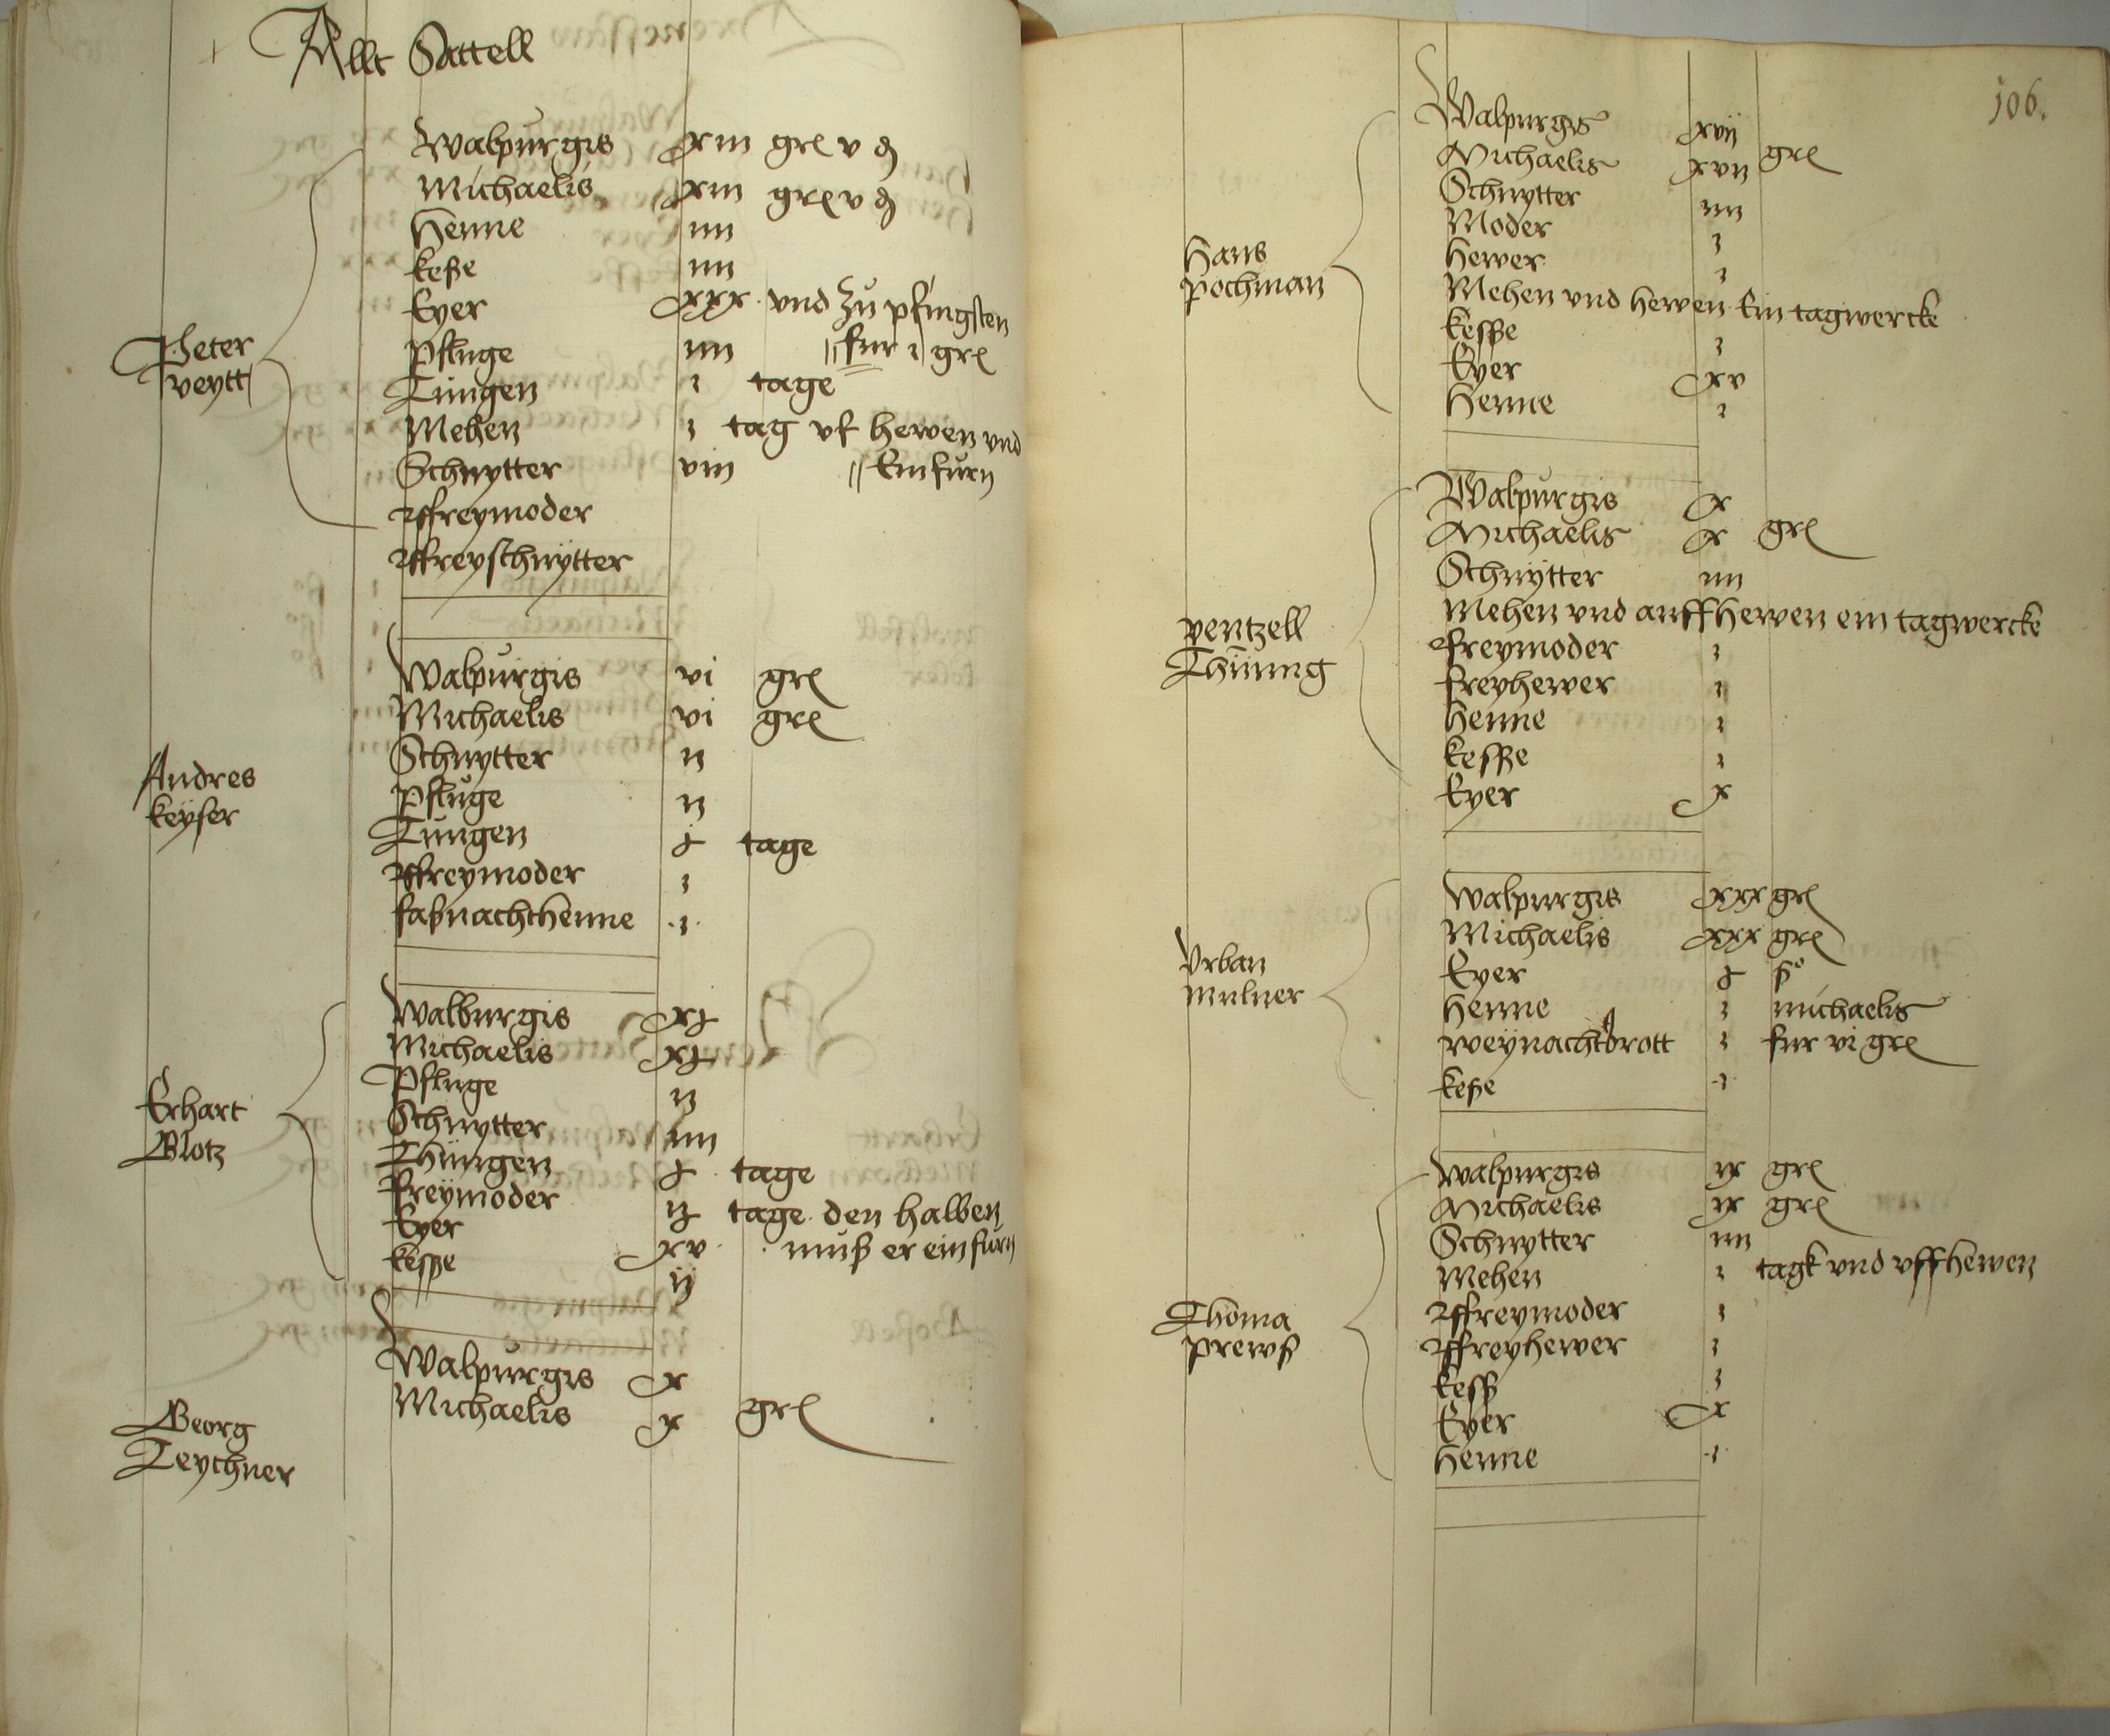 Allt Sattell
Peter
veytt
Walpurgis xiiii gre v d
Michaelis xiiii gre v d
Henne iiii
keße iiii
Eyer xxx vnd zu pfingsten
Pfluge iiii fur i gre
Tungen i tage
Mehen i tag vf hewen vnd
Schnytter viii Einfurn
ffreymoder
ffreyschnytter
Andres
keyser
Walpurgis vi gre
Michaelis vi gre
Schnytter ii
Pfluge ii
Tungen tage
ffreymoder i
faßnachthenne i
Erhart
Glotz
Walburgis
Michaelis
Pfluge ii
Schnytter iiii
Thungen tage
freymoder tage den halben
Eyer xv muß er ein furn
kesse ij
Georg
Teychner
Walpurgis x
Michaelis x gre
106.
Hans
pochman
Walpurgis xvij
Michaelis xvii gre
Schnytter iiii
Moder i
hewer i
Mehen vnd hewen Ein tagwercke
kesse i
Eyer xv
Henne i
ventzell
Thüring
Walpurgis x
Michaelis x gre
Schnytter iiii
Mehen vnd auff hewen ein tagwercke
freymoder i
freyhewer i
henne i
kesse i
Eyer x
Vrban
mulner
Walpurgis xxx gre
Michaelis xxx gre
Eyer ßo
Henne i michaelis
weynachtbrott i fur vi gre
keße i
Thoma
prewß
Walpurgis ix gre
Michaelis ix gre
Schnytter iiii
Mehen i tagk vnd vffhewen
ffreymoder i
ffreyhewer i
keß i
Eyer x
Henne i